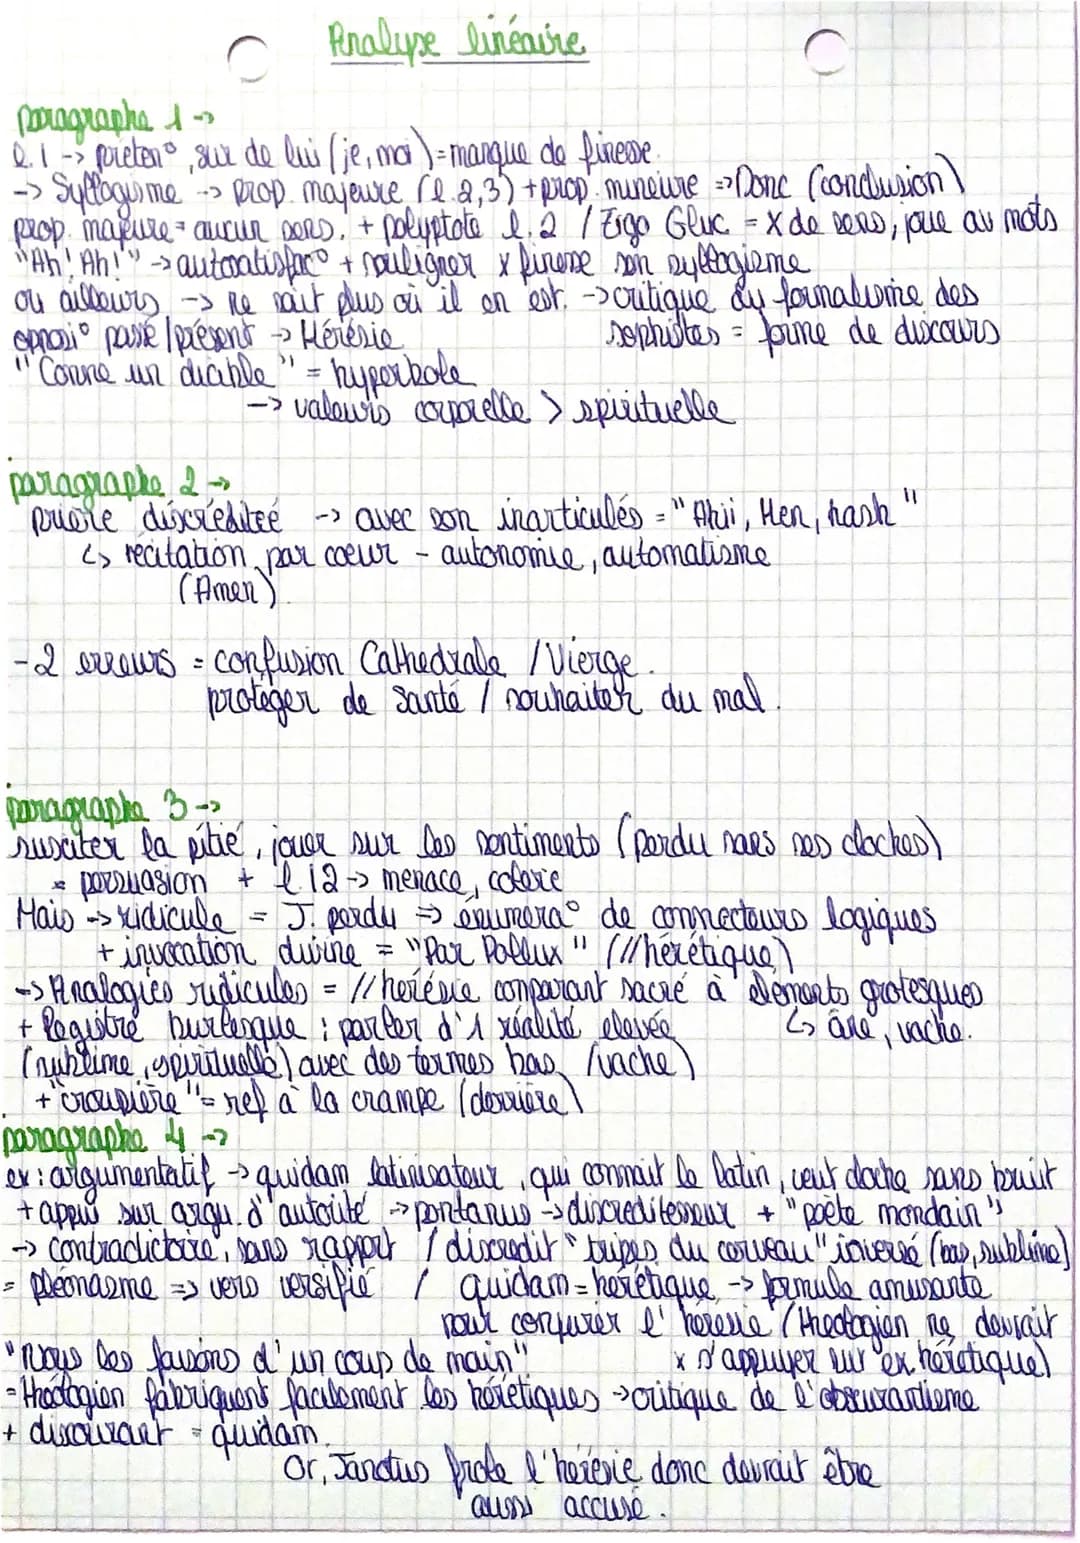 Analyse linéaire
paragraphe 1 ->
l.1 -> préten°, sur de lui (je, moi) = manque de finesse.
-> Syllogisme -> prop. majeure (l.2,3) + prop. mineure => Donc (conclusion)
prop. majeure = aucun sens. + polyptote l.2 / Ergo Gluc = x de sens, joue au mots
"Ah! Ah!" -> autosatisfac° + souligner x finesse son syllogisme
ou ailleurs -> Ne sait plus où il en est. -> critique du formalisme des
opposi° passé/présent -> Hérésie sophistes = forme de discours
"Comme un diable" = hyperbole
-> valeurs corporelle > spirituelle
paragraphe 2 ->
prière discréditée -> avec son inarticulés = "Ahii, Hen, hash"
↳ récitation par coeur - autonomie, automatisme
(Amen)
- 2 erreurs = confusion Cathédrale / Vierge.
protéger de Santé / souhaiter du mal.
paragraphe 3 ->
susciter la pitié, jouer sur les sentiments (perdu sans ses cloches)
= persuasion + l 12 -> menace, colère
Mais -> ridicule = J. perdu => énuméra° de connecteurs logiques
+ invocation divine = "Par Pollux" (//hérétique)
-> Analogies ridicules = // hérésie comparant sacré à éléments grotesques
+ Registre burlesque : parler d'1 réalité elevée ↳ âne, vache.
(sublime, spirituelle) avec des termes bas (vache)
+ "croupière" = ref à la crampe (derrière)
paragraphe 4 ->
ex : argumentatif -> quidam latinisateur, qui connait le latin, veut cloche sans bruit
+ appui sur argu. d'autorité -> pontanus -> discrediteseur + "poète mondain"
-> contradictoire, sans rapport / discredit "tripes du cerveau" inversé (bas, sublime)
= pléonasme => vers versifié / quidam = herétique -> formule amusante
pour conjurer l' hérésie (theologien ne devrait
"nous les faisons d'un coup de main" x s'appuyer sur ex. héretique)
= Théologien fabriquent facilement les hérétiques -> critique de l'obscurantisme
+ discourant = quidam.
Or, Janotus frole l'hérésie donc devrait être
aussi accusé.